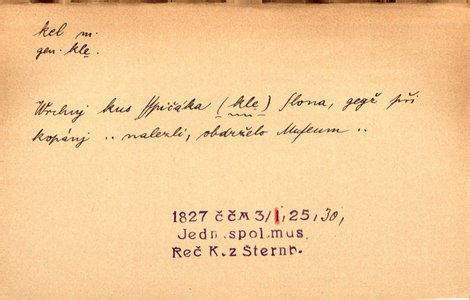 kel m.
gen. kle.
Wrchnj kus Sspičáka (kle) Slona, gegž při
kopánj .. nalezli, obdrželo Museum ..
1827 ČČM 3/1, 25, 30,
Jedn.spol.mus.
Reč K.z Sternb.